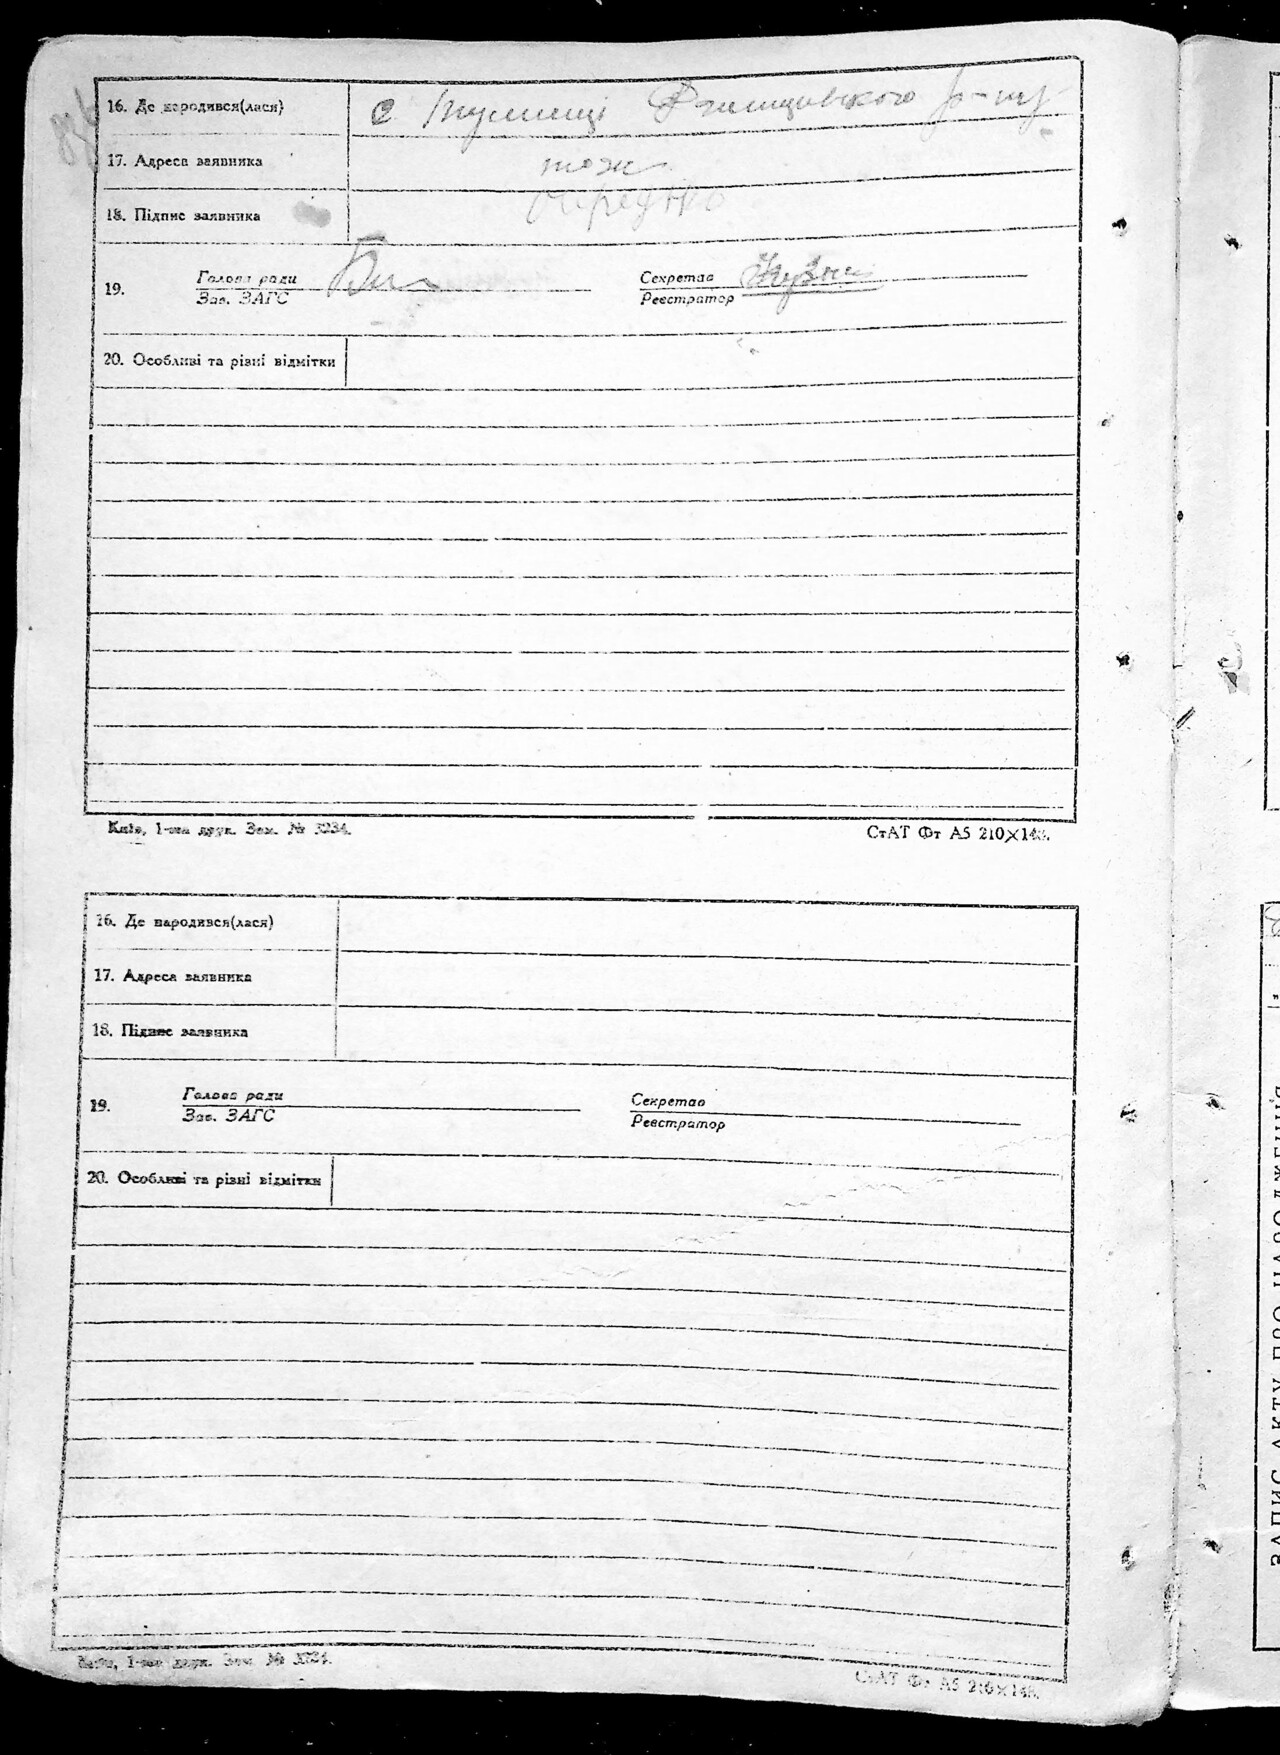 16. Де народився(лася) с
17. Адреса заявника тож
18. Підпис заявника Чередько
19. Голова ради Секретар
Зав. ЗАГС Реєстратор
20. Особливі та різні відмітки
Київ, 1-ша друк. Зам. № 3234. СтАТ Фт А5 210×148.
16. Де народився(лася)
17. Адреса заявника
18. Підпис заявника
19. Голова ради Секретар
Зав. ЗАГС Реєстратор
20. Особливі та різні відмітки
Київ, 1-ша друк. Зам. № 3234. СтАТ Фт А5 210×148.
ЗАПИС АКТУ ПРО НАРОДЖЕННЯ